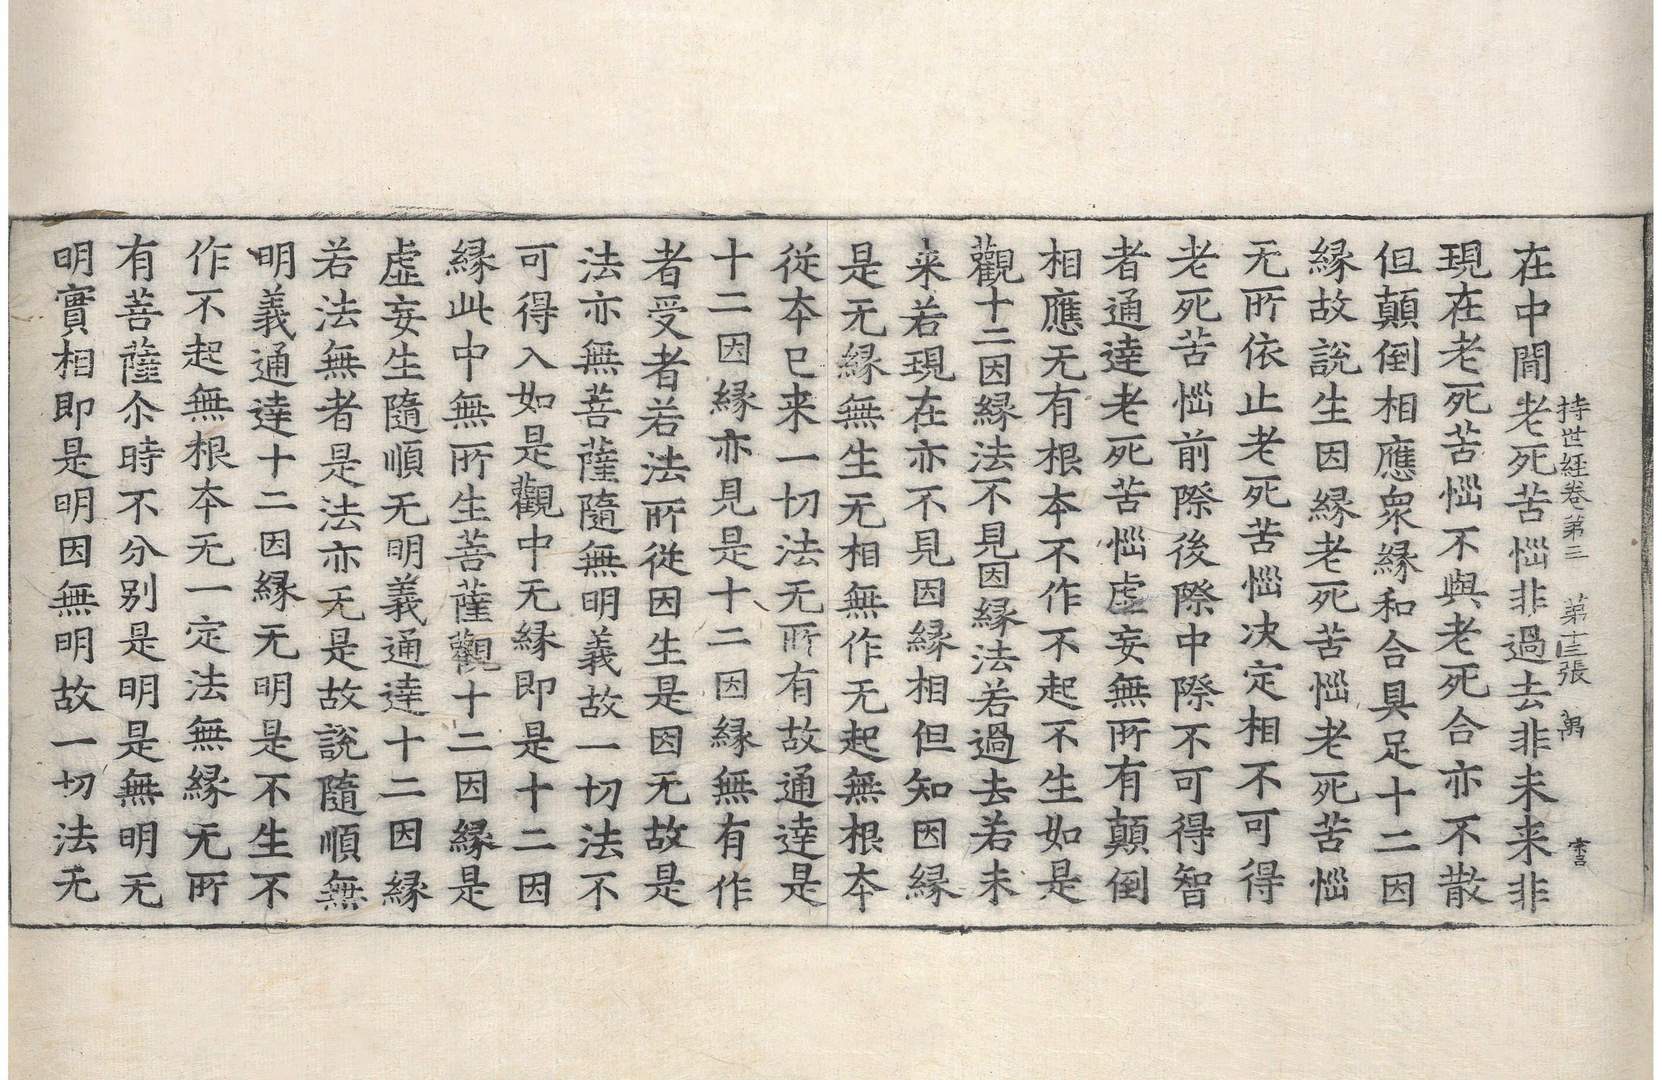 持世經卷第三 第十三張 萬
在中間老死苦惱非過去非未来非
現在老死苦惱不與老死合亦不散
但顛倒相應衆縁和合具足十二因
縁故說生因縁老死苦惱老死苦惱
无所依止老死苦惱决定相不可得
老死苦惱前際後際中際不可得智
者通達老死苦惱虛妄無所有顛倒
相應无有根本不作不起不生如是
觀十二因縁法不見因縁法若過去若未
来若現在亦不見因縁相但知因縁
是无縁無生无相無作无起無根本
從本已来一切法无所有故通達是
十二因縁亦見是十二因縁無有作
者受者若法所從因生是因无故是
法亦無菩薩隨無明義故一切法不
可得入如是觀中无縁即是十二因
縁此中無所生菩薩觀十二因縁是
虛妄生隨順无明義通達十二因縁
若法無者是法亦无是故說隨順無
明義通達十二因縁无明是不生不
作不起無根本无一定法無縁无所
有菩薩尒時不分别是明是無明无
明實相即是明因無明故一切法无